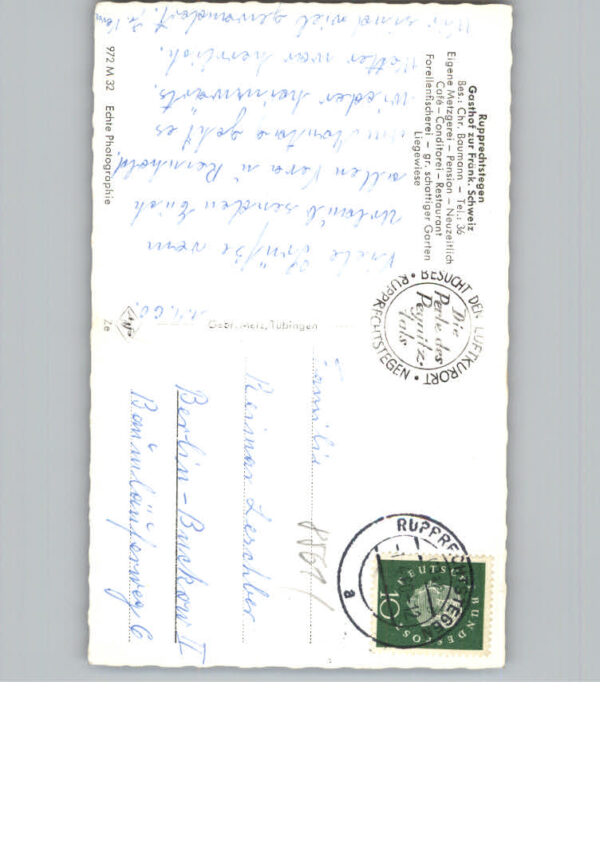 Rupprechtstegen
Gasthof zur Fränk. Schweiz
Bes.: Chr. Baumann – Tel.: 36
Eigene Metzgerei – Pension – Neuzeitlich
Café – Conditorei – Restaurant
Forellenfischerei – gr. schattiger Garten
Liegewiese
Viele Grüße vom
Urlaub senden Euch
allen Vera u. Reinhold.
Am Montag geht es
wieder heimwärts.
Wetter war herrlich.
Wir sind viel gewandert.
972 M 32 Echte Photographie
Gebr. Metz, Tübingen
Ze
BESUCHT DEN LUFTKURORT
RUPPRECHTSTEGEN
Die
Perle des
Pegnitz-
tals
RUPPRECHTSTEGEN
a
DEUTSCHE BUNDESPOST
10
Familie
Reimar Leschber
Berlin-Buckow II
Baumläuferweg 6